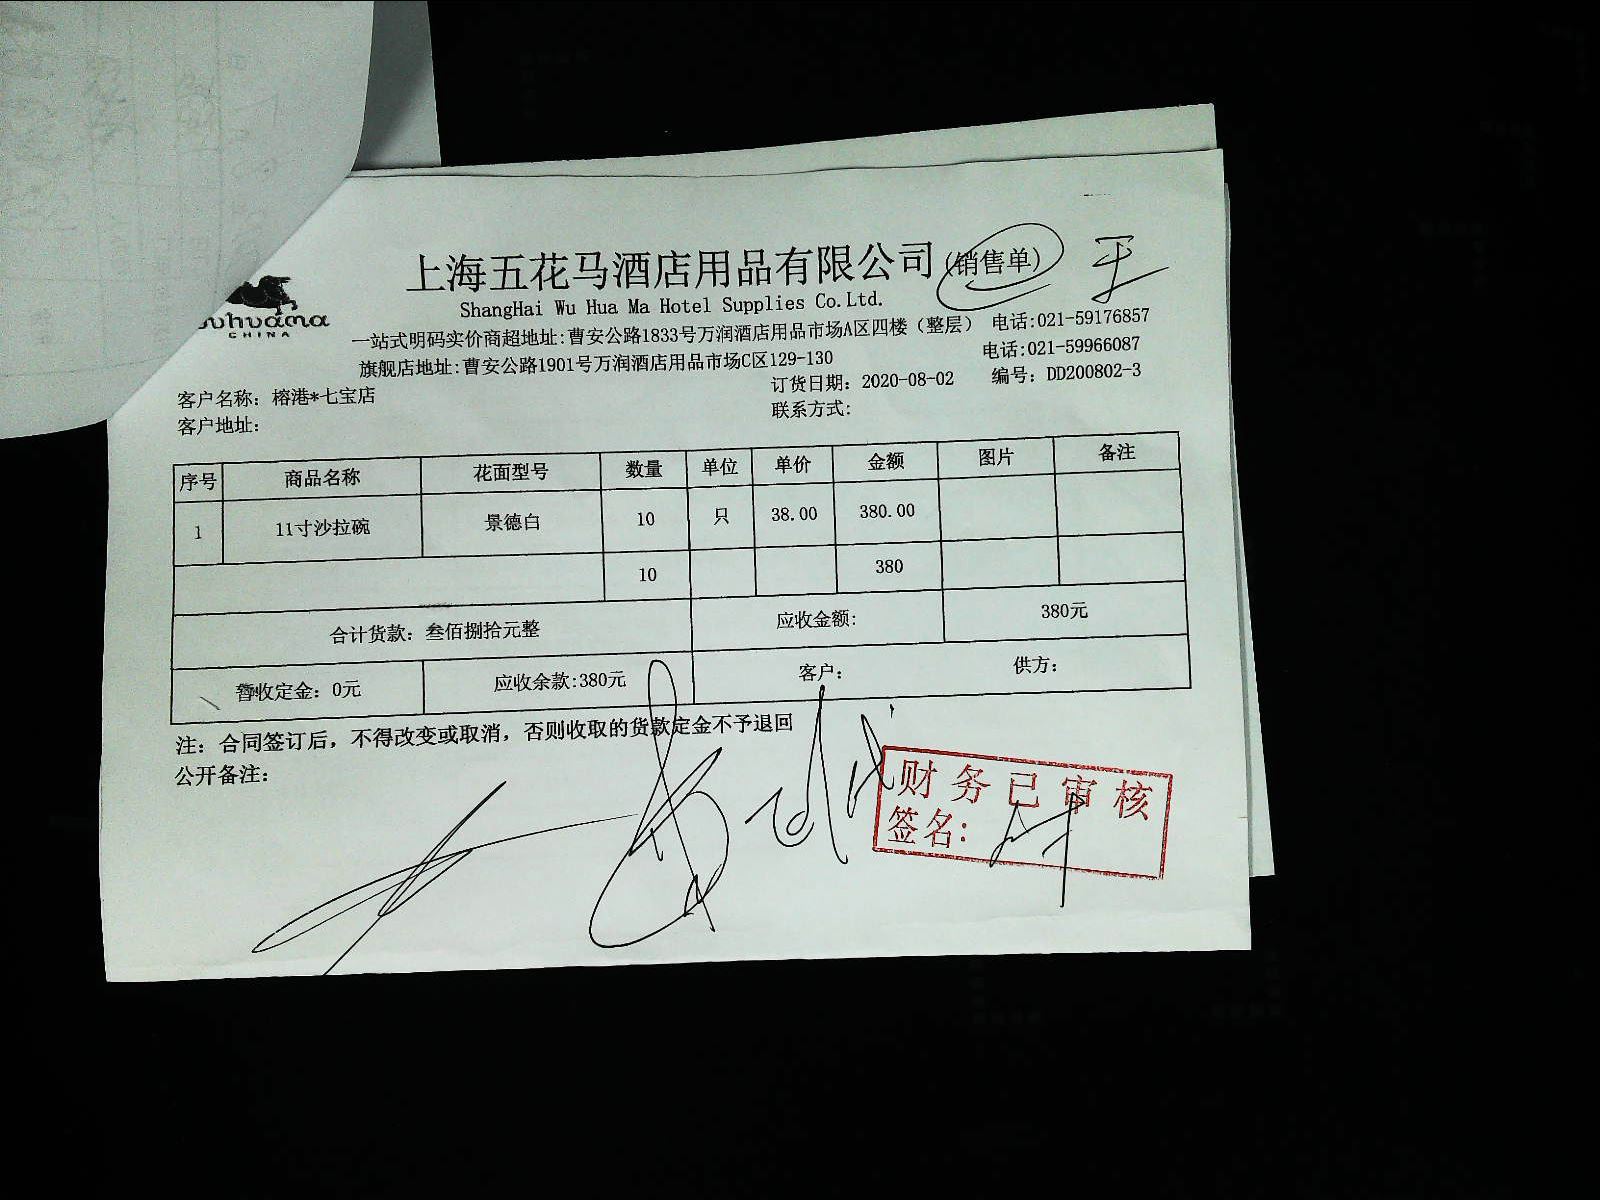 上海五花马酒店用品有限公司(销售单)
ShangHai Wu Hua Ma Hotel Supplies Co.Ltd.
CHINA
一站式明码实价商超地址:曹安公路1833号万润酒店用品市场A区四楼（整层） 电话:021-59176857
旗舰店地址:曹安公路1901号万润酒店用品市场C区129-130 电话:021-59966087
客户名称: 榕港*七宝店 订货日期: 2020-08-02 编号: DD200802-3
客户地址: 联系方式:
序号 商品名称 花面型号 数量 单位 单价 金额 图片 备注
1 11寸沙拉碗 景德白 10 只 38.00 380.00
10 380
合计货款: 叁佰捌拾元整 应收金额: 380元
暂收定金: 0元 应收余款:380元 客户: 供方:
注: 合同签订后, 不得改变或取消, 否则收取的货款定金不予退回
公开备注:
财务已审核
签名: